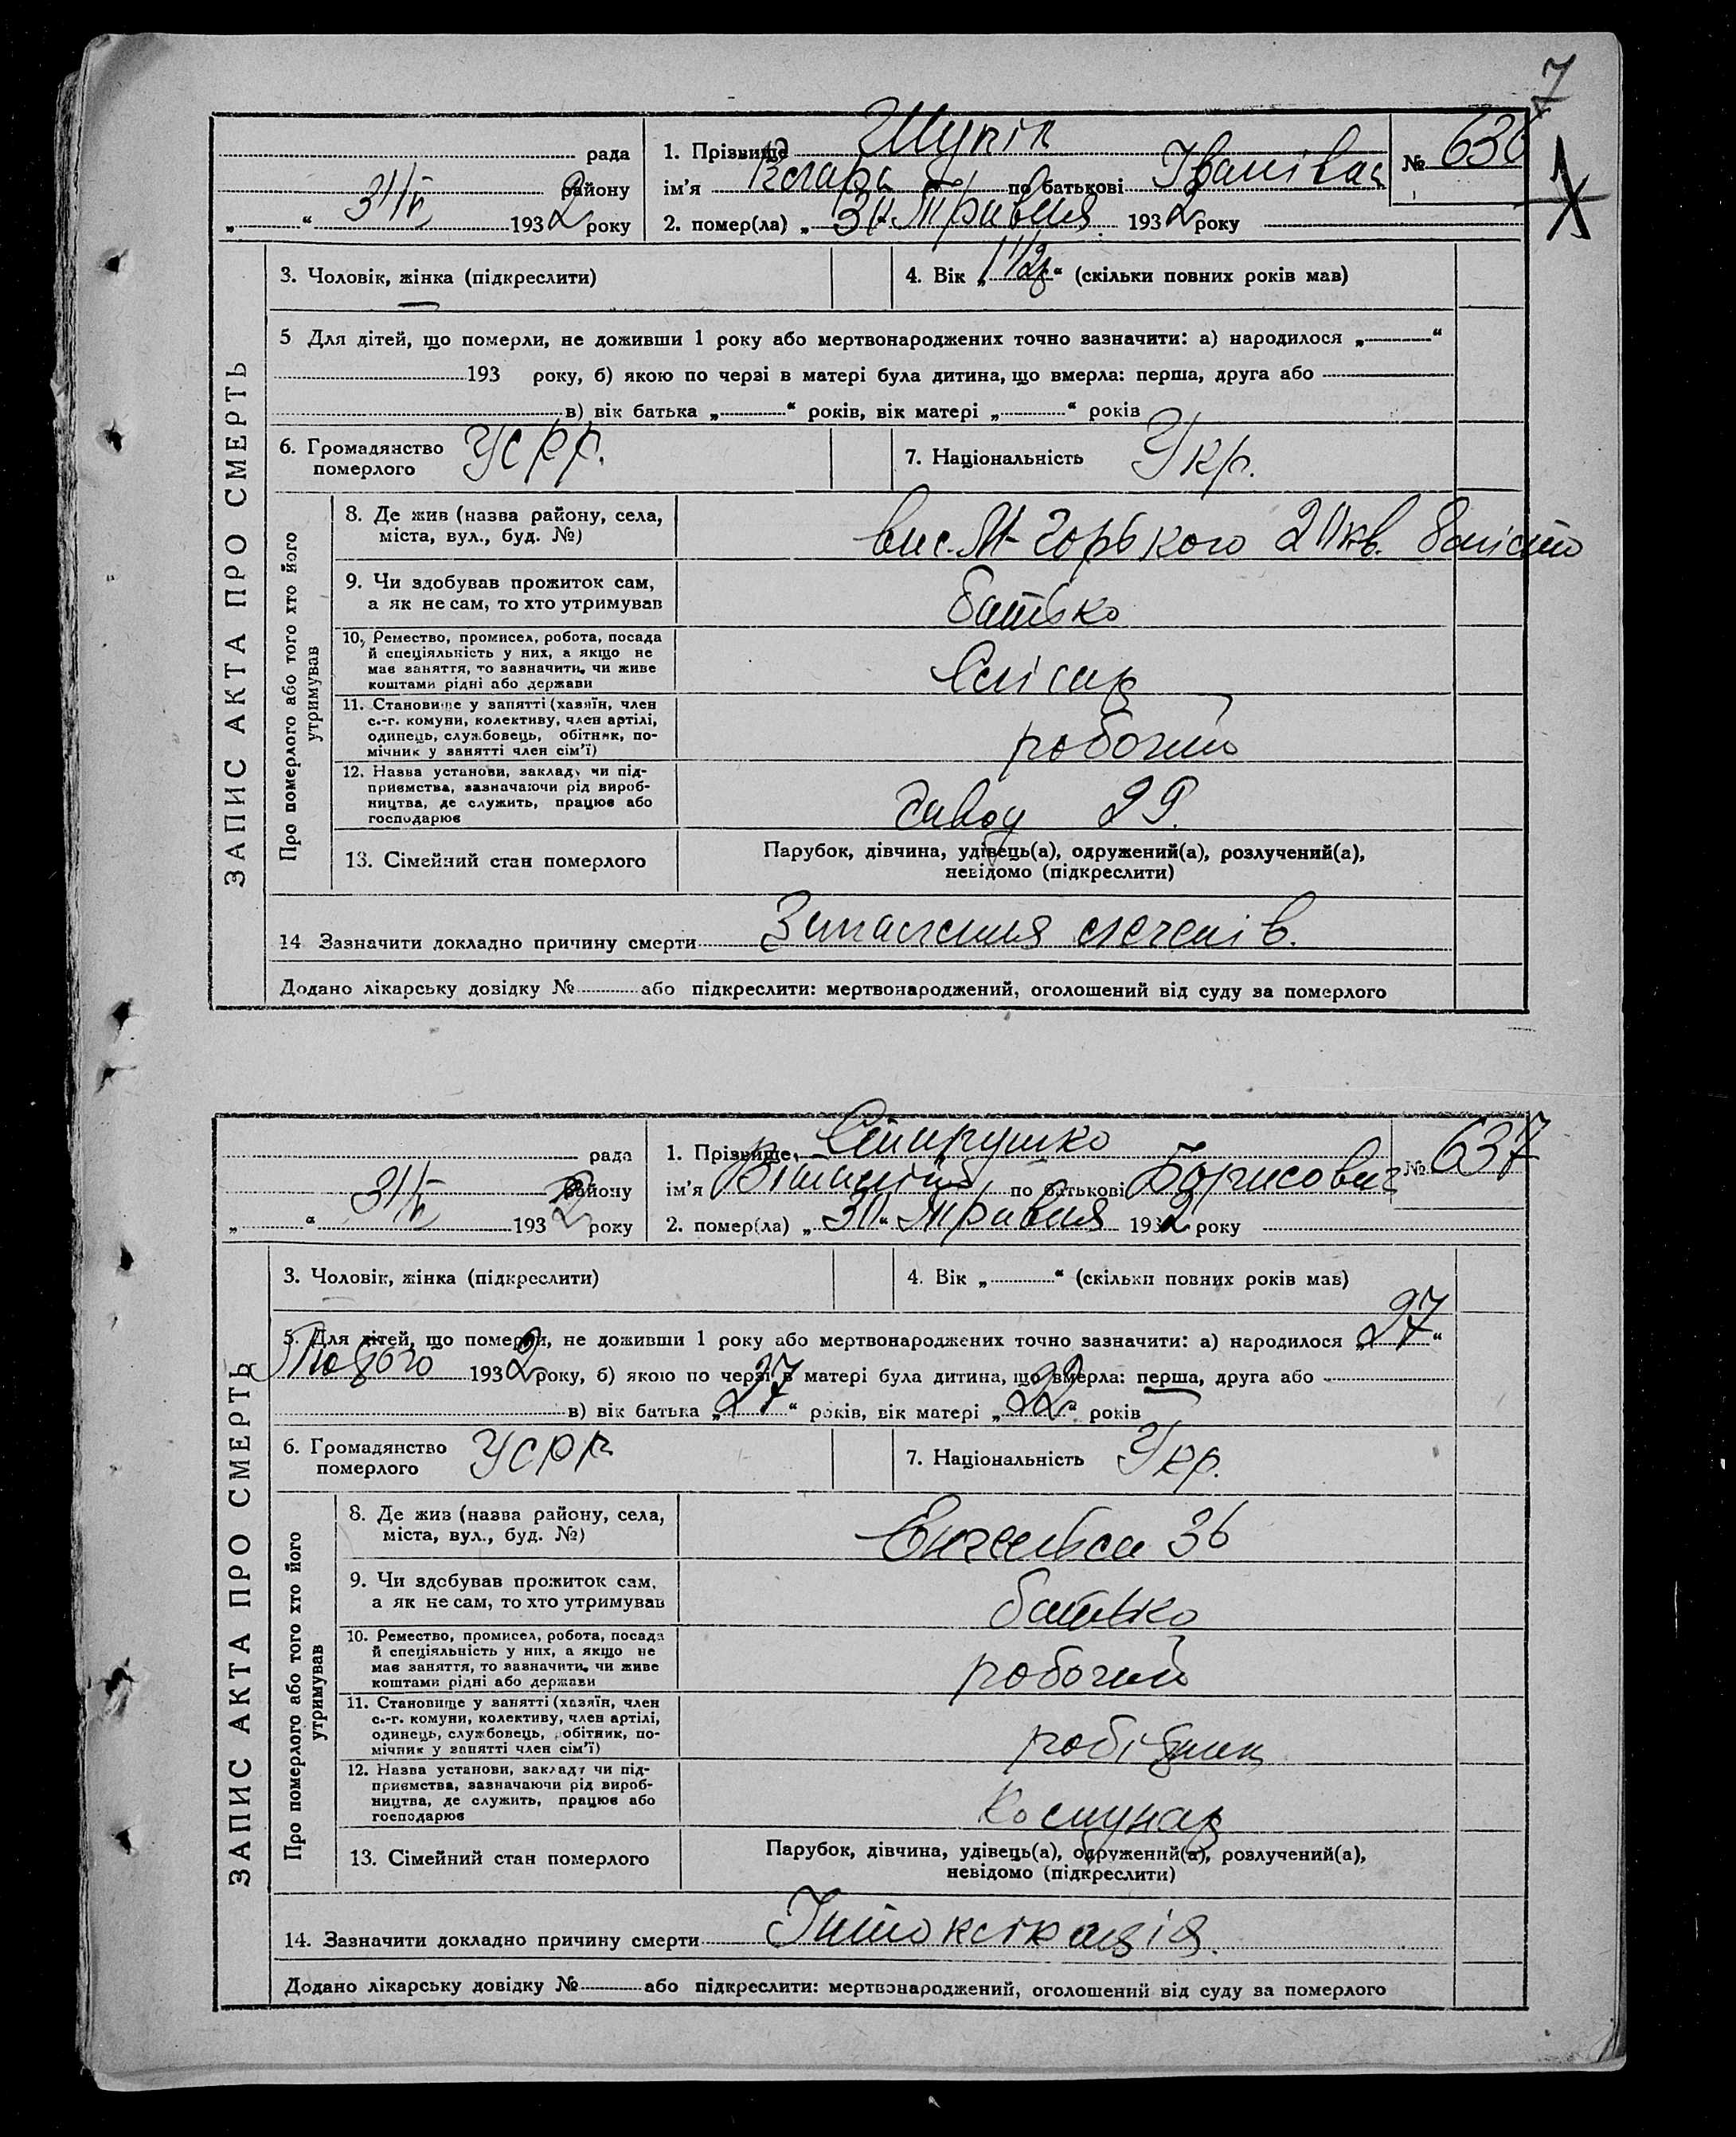 7
рада
району
31/V 1932 року
1. Прізвище Шупік
ім’я Клара по батькові Іванівна
2. помер(ла) „30“ Травня 1932 року
№ 636
ЗАПИС АКТА ПРО СМЕРТЬ
3. Чоловік, жінка (підкреслити)
4. Вік „1 1/2“ (скільки повних років мав)
5 Для дітей, що померли, не доживши 1 року або мертвонароджених точно зазначити: а) народилося „ “
193 року, б) якою по черзі в матері була дитина, що вмерла: перша, друга або
в) вік батька „ “ років, вік матері „ “ років
6. Громадянство
померлого УСРР.
7. Національність Укр.
Про померлого або того хто його
утримував
8. Де жив (назва району, села,
міста, вул., буд. №)
вис. М-Горького 21 кв.
9. Чи здобував прожиток сам,
а як не сам, то хто утримував
батько
10, Ремество, промисел, робота, посада
й спеціяльність у них, а якщо не
має заняття, то зазначити, чи живе
коштами рідні або держави
Слісар
11. Становище у занятті (хазяїн, член
с.-г. комуни, колективу, член артілі,
одинець, службовець, обітник, по-
мічник у занятті член сім’ї)
робочий
12. Назва установи, закладу чи під-
приємства, зазначаючи рід вироб-
ництва, де служить, працює або
господарює
Завод 29.
13. Сімейний стан померлого
Парубок, дівчина, удівець(а), одружений(а), розлучений(а),
невідомо (підкреслити)
14 Зазначити докладно причину смерти Запалення легенів.
Додано лікарську довідку № або підкреслити: мертвонароджений, оголошений від суду за померлого
рада
району
31/V 1932 року
1. Прізвище Старушко
ім’я Віталій по батькові Борисович
2. помер(ла) „30“ Травня 1932 року
№ 637
ЗАПИС АКТА ПРО СМЕРТЬ
3. Чоловік, жінка (підкреслити)
4. Вік „ “ (скільки повних років мав)
5. Для дітей, що померли, не доживши 1 року або мертвонароджених точно зазначити: а) народилося „27“
Лютого 1932 року, б) якою по черзі в матері була дитина, що вмерла: перша, друга або
в) вік батька „27“ років, вік матері „22“ років
6. Громадянство
померлого УСРР
7. Національність Укр.
Про померлого або того хто його
утримував
8. Де жив (назва району, села,
міста, вул., буд. №)
Енгельса 36
9. Чи здобував прожиток сам,
а як не сам, то хто утримував
батько
10. Ремество, промисел, робота, посада
й спеціяльність у них, а якщо не
має заняття, то зазначити, чи живе
коштами рідні або держави
робочий
11. Становище у занятті (хазяїн, член
с.-г. комуни, колективу, член артілі,
одинець, службовець, обітник, по-
мічник у занятті член сім’ї)
робітник
12. Назва установи, закладу чи під-
приємства, зазначаючи рід вироб-
ництва, де служить, працює або
господарює
Комунар
13. Сімейний стан померлого
Парубок, дівчина, удівець(а), одружений(а), розлучений(а),
невідомо (підкреслити)
14. Зазначити докладно причину смерти Інтоксікація.
Додано лікарську довідку № або підкреслити: мертвонароджений, оголошений від суду за померлого